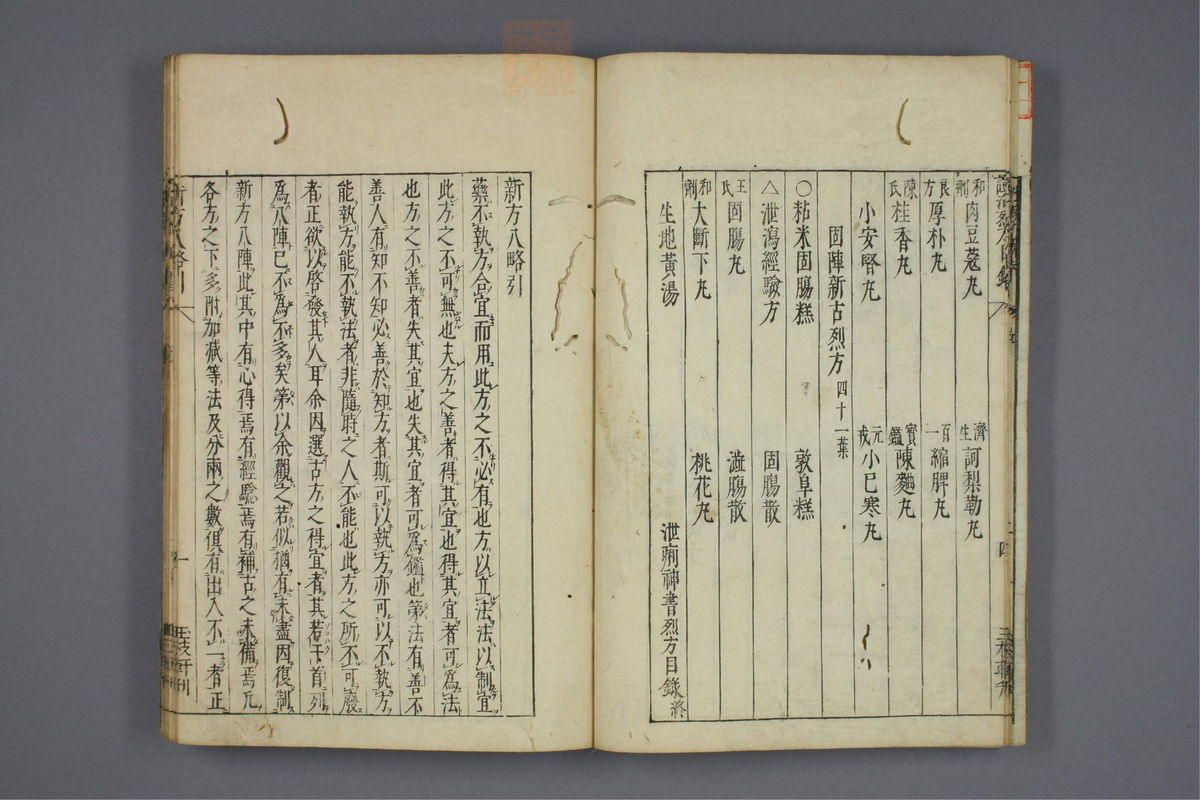 和劑 肉豆蔻丸 濟生 訶梨勒丸
良方 厚朴丸 百一 縮脾丸
陳氏 桂香丸 寶鑑 陳麯丸
小安腎丸 元戎 小已寒丸
固陣新古烈方 四十一葉
○粘米固腸糕 敦阜糕
△泄瀉經驗方 固腸散
王氏 固腸丸 澁腸散
和劑 大斷下丸 桃花丸
生地黃湯 泄痢神書烈方目錄終
新方八略引
藥不執方合宜而用此方之不必有也方以立法法以制宜
此方之不可無也夫方之善者得其宜也得其宜者可爲法
也方之不善者失其宜也失其宜者可爲鑑也第法有善不
善人有知不知必善於知方者斯可以執方亦可以不執方
能執方能不執法者非隨時之人不能也此方之所不可廢
者正欲以啓發其人耳余因選古方之得宜者其若干首列
爲八陣已不爲不多矣第以余觀之若似猶有未盡因復制
新方八陣此其中有心得焉有經驗焉有補古之未備焉凡
各方之下多附加減等法及分兩之數俱有出入不一者正
新方八略引 一